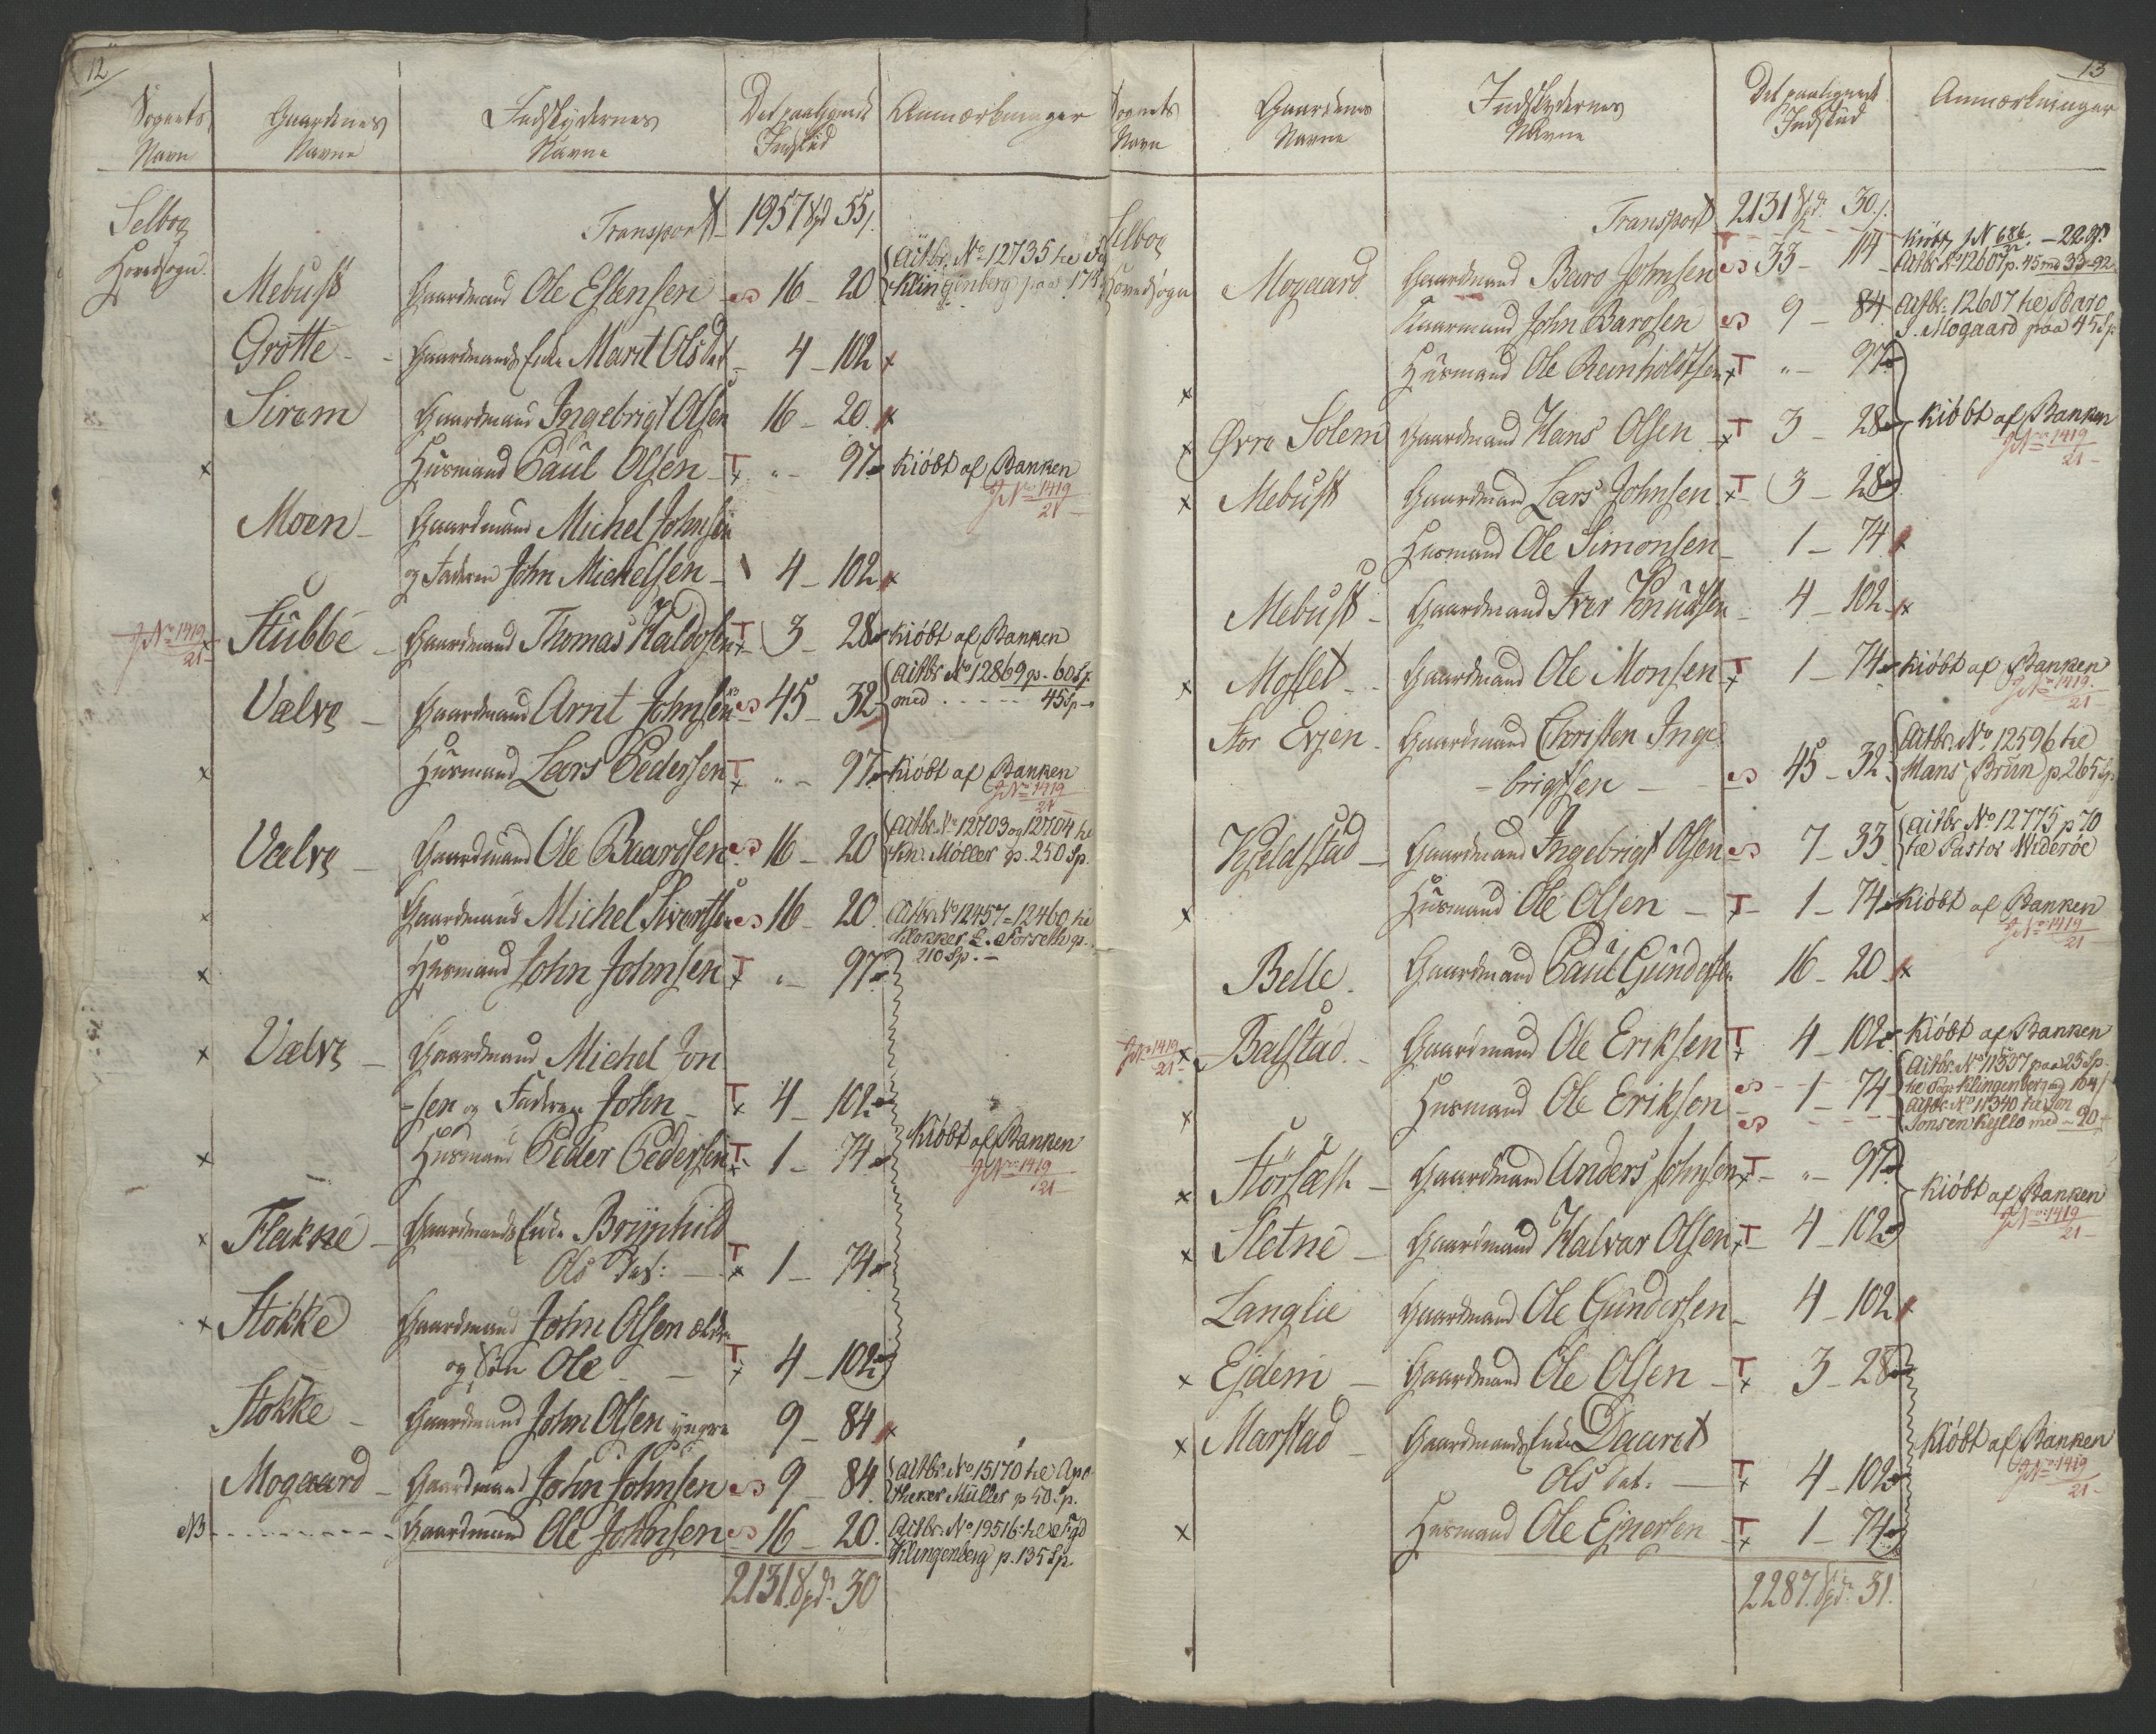 12
Sognets Navn | Gaardenes Navne | Indskydernes Navne | Det paalignede Indskud | Anmærkninger
Selboe Hovedsogn
Transport 1957 Spd 55 s.
Mebust | Gaardmand Ole Estensen | S 16 - 20 | Actbr. No 12735 til Fo Klingenberg paa
Grøtte - | Gaardmands Enke Marit Olsdat | 4 - 102 x
Sirem | Gaardmand Ingebrigt Olsen | 16 - 20 x
x | Huusmand Paul Olsen | T x " - 97 | Kiøbt af Banken
J No 1419/21
Moen - | Gaardmand Michel Johnsen
og Faderen John Michelsen - | 4 - 102 x
J No 1419/21 x Stubbe - | Gaardmand Thomas Haldosen | T x 3 - 28 | Kiøbt af Banken
Vælve - | Gaardmand Arnt Johnsen | S 45 - 32 | Actbr No 12869 p. 60 Sp. med ..... 45 Sp
x | Huusmand Lars Pedersen | T x " - 97 | Kiøbt af Banken
J No 1419/21
Vælve - | Gaardmand Ole Baardsen | S 16 - 20 | Actbr. No 12703 og 12704 til Kn. Møller p. 250 Sp.
x | Gaardmand Michel Sivertsen | S 16 - 20 | Actbr No 12457 = 12460 til Klokker E. Forseth p. 210 Sp. -
x | Huusmand John Johnsen | T x " - 97
x Vælve - | Gaardmand Michel Jon-
-sen og Faderen John - | T x 4 - 102
x | Huusmand Peder Pedersen | T x 1 - 74 | Kiøbt af Banken
J No 1419/21
x Flakne - | Gaardmands Enke Brynhild
Ols dat: - | T x 1 - 74
x Stokke | Gaardmand John Olsen ældre
og Søn Ole - | T x 4 - 102
Stokke - | Gaardmand John Olsen yngre | 9 - 84 x
Mogaard - | Gaardmand John Johnsen | S 9 - 84 | Actbr. No 15170 til Apotheker Müller p 50 Sp.
NB - - - | Gaardmand Ole Johnsen | S 16 - 20 | Actbr. No 19516 til Fgd Klingenberg p. 135 Sp.
2131 Spd 30
13
Sognets Navn | Gaardenes Navne | Indskydernes Navne | Det paalignede Indskud | Anmærkninger
Selboe Hovedsogn
Transport 2131 Spd. 30 s.
Mogaard | Gaardmand Baro Johnsen | S 33 - 114 | Kiøbt J N 686 - 22
Actbr No 12607 p. 45 med 33-92
Kaarmand John Barosen | S 9 - 84 | Actbr. 12607 til Baro J. Mogaard paa 45 Sp
x | Huusmand Ole Reinholdtsen | T x " - 97
x Øvre Solem | Gaardmand Hans Olsen | T x 3 - 28 | Kiøbt af Banken
J No 1419/21
x Mebust | Gaardmand Lars Johnsen | T x 3 - 28
Huusmand Ole Simonsen - | 1 - 74 x
Mebust - | Gaardmand Iver Knudsen - | 4 - 102 x
x Moslet - | Gaardmand Ole Monsen | T x 1 - 74 | Kiøbt af Banken
J No 1419/21
Stor Evjen - | Gaardmand Christen Inge-
- brigtsen - | S 45 - 32 | Actbr. No 12596 til Hans Brun p 265 Sp.
Kjeldstad - | Gaardmand Ingebrigt Olsen | S 7 - 33 | Actbr No 12775 p 70 til Pastor Widerøe
x | Huusmand Ole Olsen - | T x 1 - 74 | Kiøbt af Banken
J No 1419/21
Belle - | Gaardmand Paul Gundersen | 16 - 20 x
J No 1419/21 x Balstad - | Gaardmand Ole Eriksen | T x 4 - 102 | Kiøbt af Banken
x | Huusmand Ole Eriksen | S 1 - 74 S | Actbr. No 11337 paa 25 Sp. til Fogd Klingenberg med 104 s
Actbr. No 11340 til Jon Jonsen Kyllo med - 90
x Størsæth - | Gaardmand Anders Johnsen | T x " - 97
x Sletne - | Gaardmand Halvar Olsen | T x 4 - 102 | Kiøbt af Banken
J No 1419/21
Langlie | Gaardmand Ole Gundersen - | 4 - 102 x
x Ejdem - | Gaardmand Ole Olsen - | T x 3 - 28
x Marstad - | Gaardmands Enke Daaret
Ols dat: - | T x 4 - 102 | Kiøbt af Banken
J No 1419/21
x | Huusmand Ole Ejnersen | T x 1 - 74
2287 Spd 31.